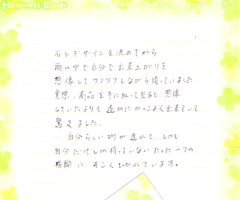 石とデザインを決めてから
雨の中で自分で出来上がりを
想像してワクワクしながら待っていました
実際、商品を手に取って見ると、想像
していたよりも遥かにかっこよく出来ていて
驚きました。
自分らしい物が造れて、しかも
自分だけしか持っていないたった一つの
に すごくひかれています。